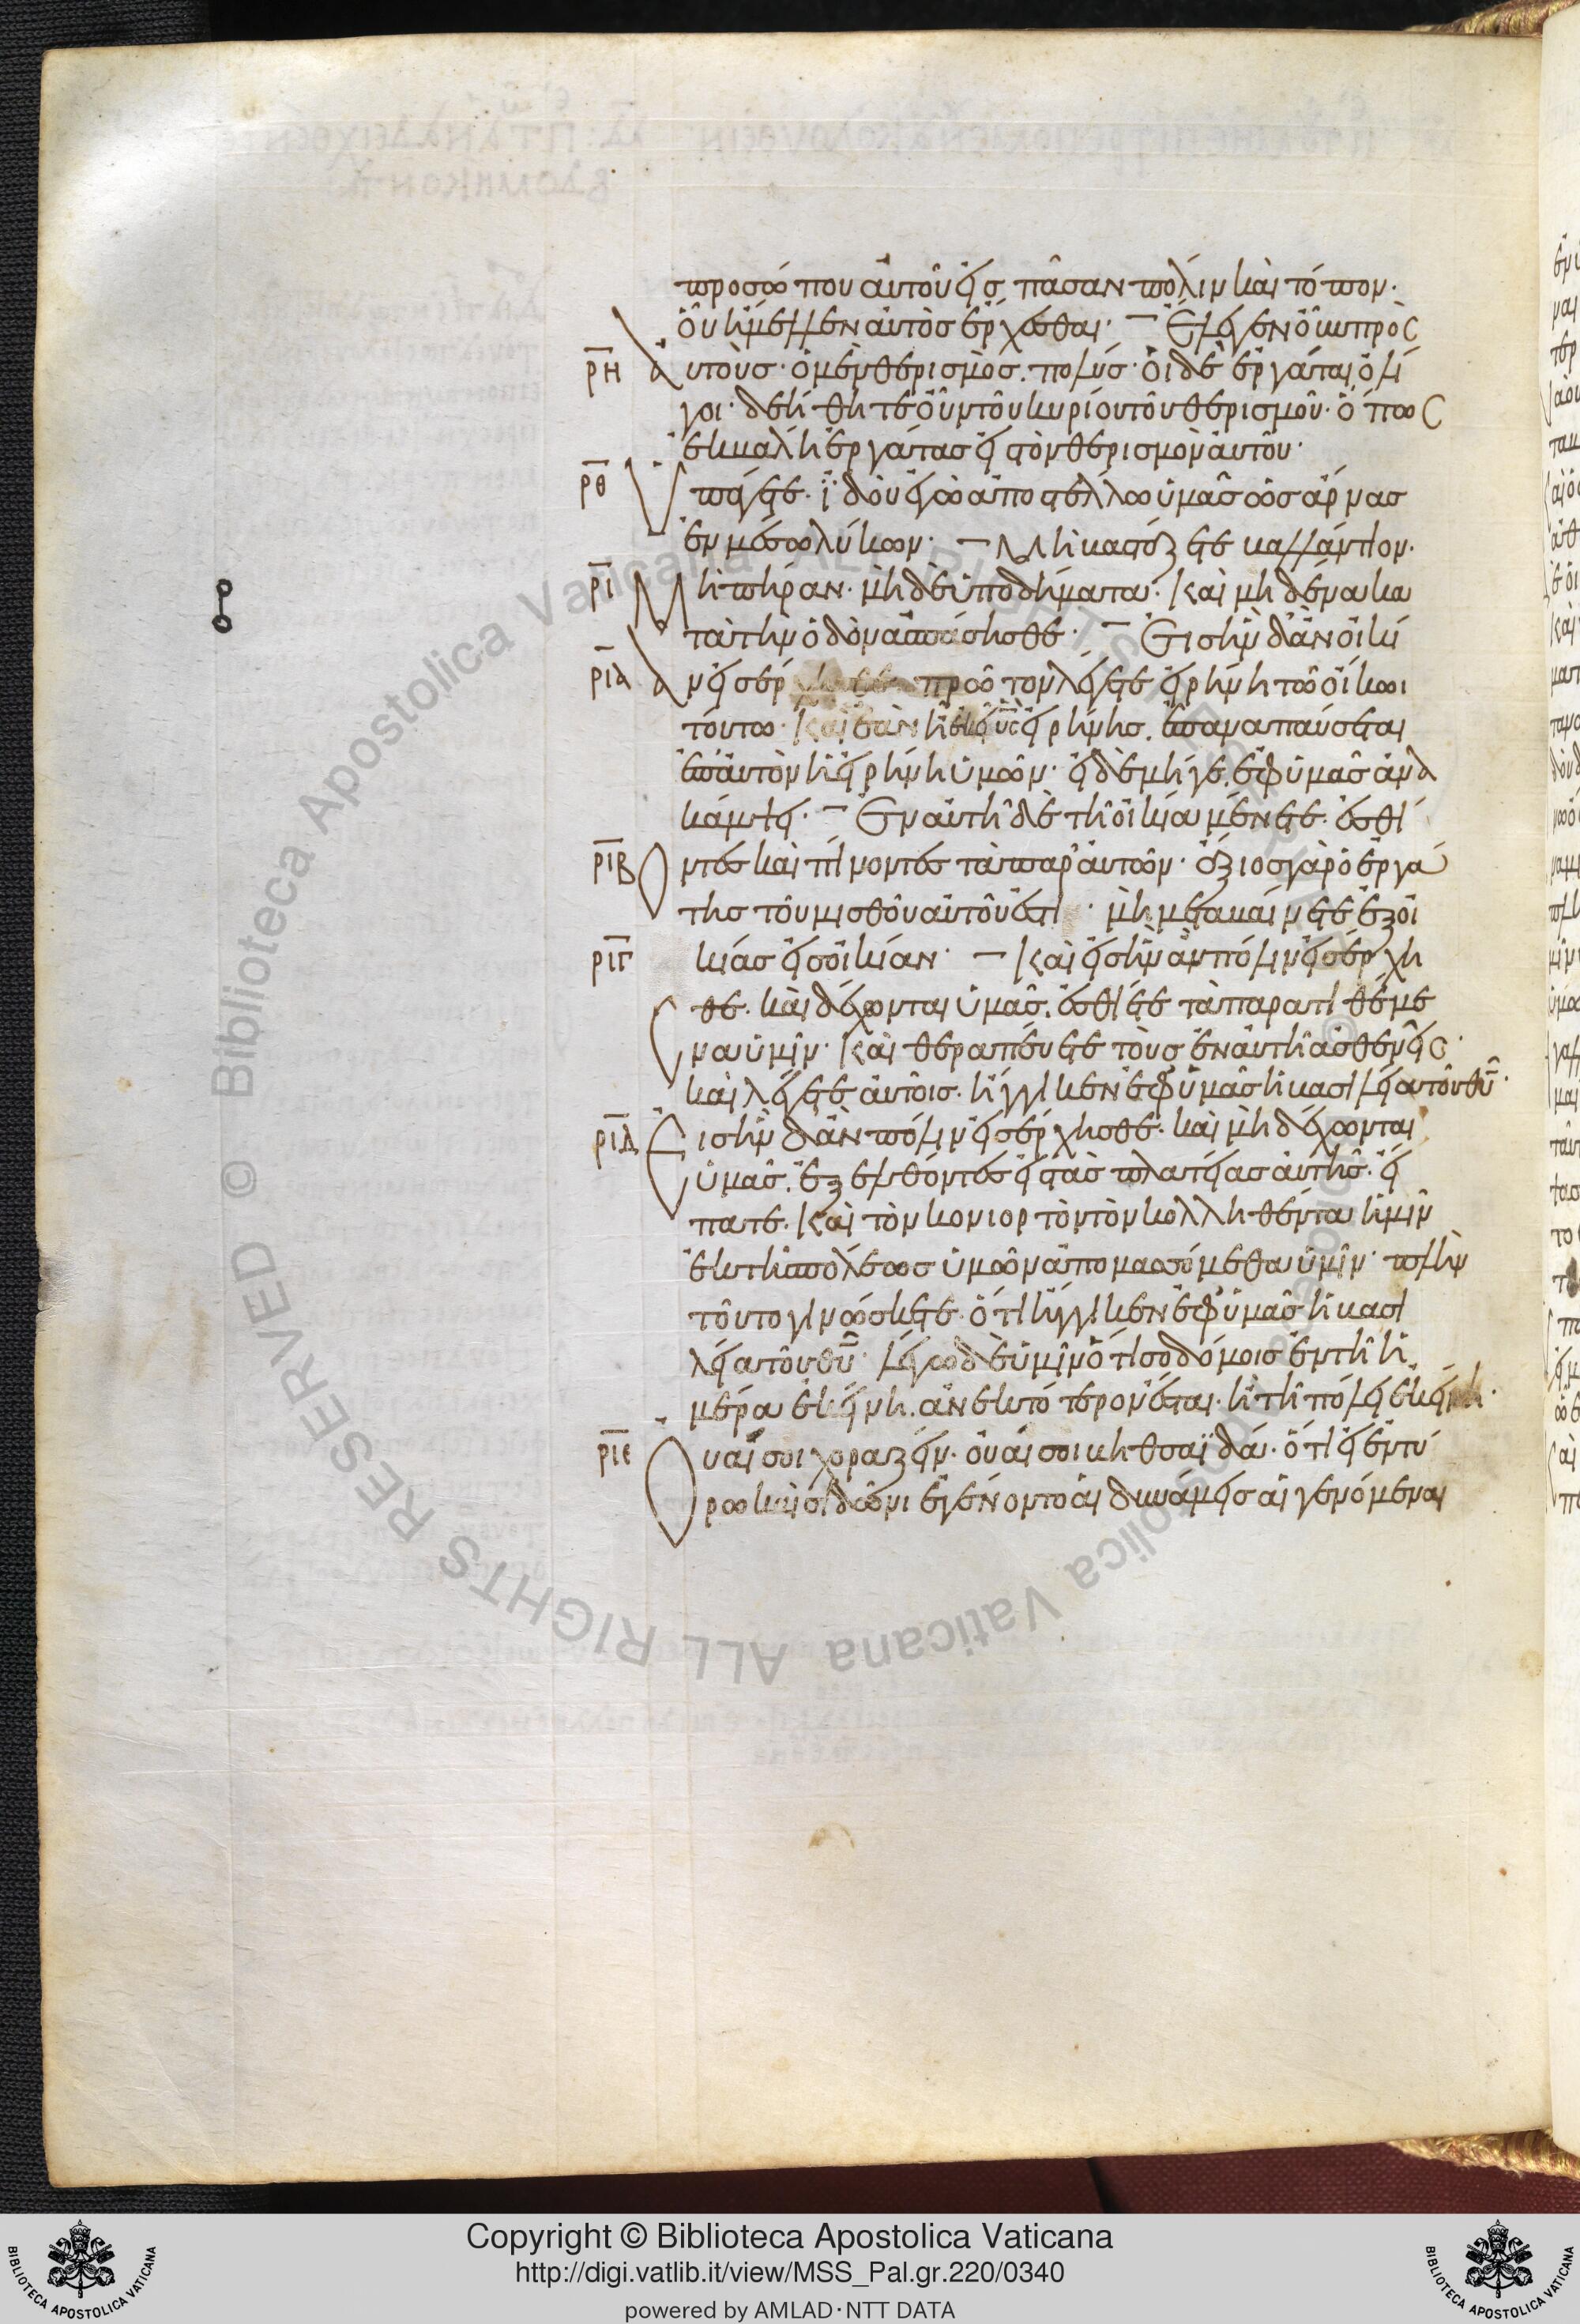 προσώπου αὐτοῦ εἰς πᾶσαν πόλιν καὶ τόπον·
οὗ ἤμελλεν αὐτὸς ἔρχεσθαι· Ἔλεγεν οὖν πρὸς
ρη αὐτοὺς· ὁ μὲν θερισμὸς· πολύς· οἱ δὲ ἐργάται ὀλί
γοι· δεήθητε οὖν τοῦ κυρίου τοῦ θερισμοῦ· ὅπως
ἐκβάλη ἐργάτας εἰς τὸν θερισμὸν αὐτοῦ·
ρθ Ὑπάγετε· ἰδοὺ ἐγὼ ἀποστέλλω ὑμᾶς ὡς ἄρνας
ἐν μέσω λύκων· Μὴ βαστάζετε βαλλάντιον·
ρι Μὴ πήραν· μὴ δὲ ὑποδήματα· Καὶ μηδένα κα
τὰ τὴν ὁδὸν ἀσπάσησθε· Εἰς ἣν δ' ἂν οἰκί
ρια αν εἰσέρχησθε πρῶτον λέγετε εἰρήνη τῶ οἴκωι
τούτω· Καὶ ἐὰν ἦ ἐκεῖ υς εἰρήνης. ἐπαναπαύσεται
ἐπ' αὐτὸν ἡ εἰρήνη ὑμῶν· εἰ δὲ μήγε. ἐφ' ὑμᾶς ἀνα
κάμψει· Ἐν αὐτῆ δὲ τῆ οἰκία μένετε. ἐσθί
ριβ οντες καὶ πίνοντες τὰ παρ' αὐτῶν· ἄξιος γὰρ ὁ ἐργά
της τοῦ μισθοῦ αὐτοῦ ἐστι· μὴ μεταβαίνετε ἐξ οἰ
ριγ κίας εἰς οἰκίαν· Καὶ εἰς ἣν ἂν πόλιν εἰσέρχη
σθε. καὶ δέχονται ὑμᾶς. ἐσθίετε τὰ παρατιθέμε
να ὑμῖν· Καὶ θεραπεύετε τοὺς ἐν αὐτῆ ἀσθενεῖς·
καὶ λέγετε αὐτοῖς. ἤγγικεν ἐφ' ὑμᾶς ἡ βασιλεία τοῦ θυ·
ριδ Εἰς ἣν δ' ἂν πόλιν εἰσέρχησθε. καὶ μὴ δέχωνται
ὑμᾶς. ἐξελθόντες εἰς τὰς πλατείας αὐτῆς. εἴ
πατε. Καὶ τὸν κονιορτὸν τὸν κολληθέντα ἡμῖν
ἐκ τῆς πόλεως ὑμῶν ἀπομασσόμεθα ὑμῖν· πλὴν
τοῦτο γινώσκετε. ὅτι ἤγγικεν ἐφ' ὑμᾶς ἡ βασι
λεία τοῦ θυ· λέγω δὲ ὑμῖν ὅτι σοδόμοις ἐν τῆ ἡ
μέρα ἐκείνη. ἀνεκτότερον ἔσται. ἢ τῆ πόλει ἐκείνη·
ριε Οὐαί σοι χοραζείν. οὐαί σοι βηθσαϊδά. ὅτι εἰ ἐν τύ
ρω καὶ σιδῶνι ἐγένοντο αἱ δυνάμεις αἱ γενόμεναι
Copyright © Biblioteca Apostolica Vaticana
http://digi.vatlib.it/view/MSS_Pal.gr.220/0340
powered by AMLAD·NTT DATA